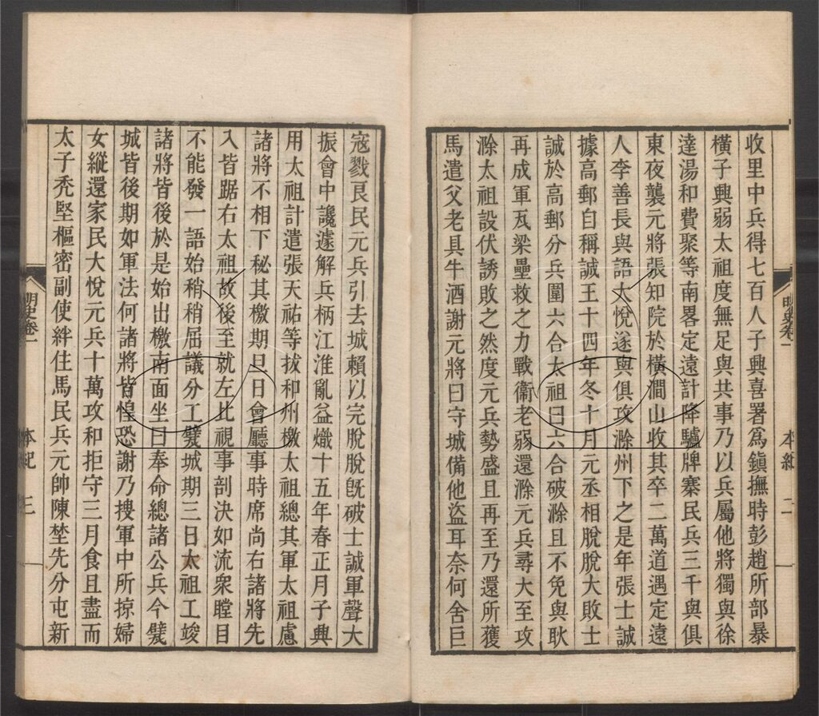 收里中兵得七百人子興喜署爲鎭撫時彭趙所部暴
橫子興弱太祖度無足與共事乃以兵屬他將獨與徐
達湯和費聚等南畧定遠計降驢牌寨民兵三千與俱
東夜襲元將張知院於橫澗山收其卒二萬道遇定遠
人李善長與語大悅遂與俱攻滁州下之是年張士誠
據高郵自稱誠王十四年冬十月元丞相脫脫大敗士
誠於高郵分兵圍六合太祖曰六合破滁且不免與耿
再成軍瓦梁壘救之力戰衞老弱還滁元兵尋大至攻
滁太祖設伏誘敗之然度元兵勢盛且再至乃還所獲
馬遣父老具牛酒謝元將曰守城備他盜耳奈何舍巨
明史卷一
本紀
二
寇戮良民元兵引去城賴以完脫脫旣破士誠軍聲大
振會中讒遽解兵柄江淮亂益熾十五年春正月子興
用太祖計遣張天祐等拔和州檄太祖總其軍太祖慮
諸將不相下秘其檄期旦日會廳事時席尚右諸將先
入皆踞右太祖故後至就左比視事剖決如流衆瞠目
不能發一語始稍稍屈議分工甓城期三日太祖工竣
諸將皆後於是始出檄南面坐曰奉命總諸公兵今甓
城皆後期如軍法何諸將皆惶恐謝乃搜軍中所掠婦
女縱還家民大悅元兵十萬攻和拒守三月食且盡而
太子禿堅樞密副使絆住馬民兵元帥陳埜先分屯新
明史卷一
本紀
三